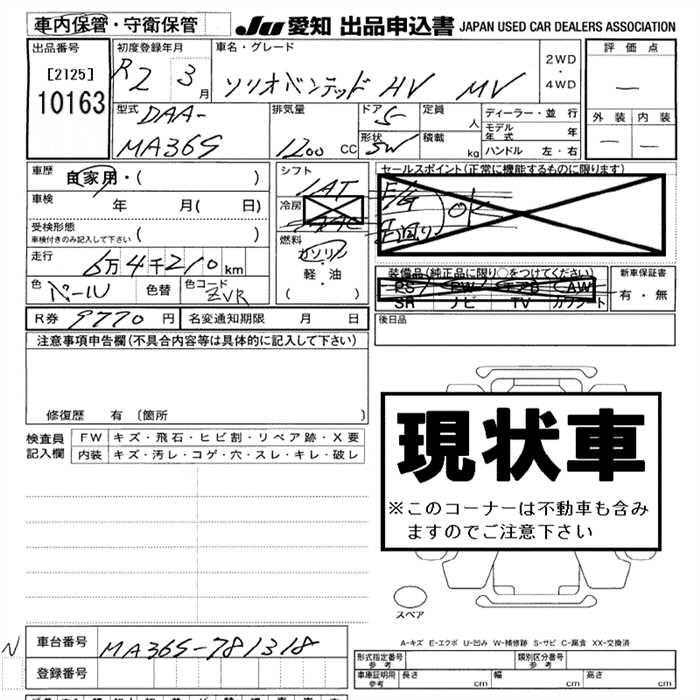 車内保管・守衛保管
JU 愛知 出品申込書 JAPAN USED CAR DEALERS ASSOCIATION
出品番号 初度登録年月 車名・グレード 評価点
[2125]
10163
R2 3月 ソリオバンテッド HV MV 2WD・4WD
型式 DAA-
MA36S
排気量 1200 CC
ドア 5
形状 SW
定員 人
積載 kg
ディーラー・並行
モデル年式 年
ハンドル 左・右
外装 内装
車歴 自家用・( )
車検 年 月( 日)
受検形態
車検付きのみ記入して下さい ( )
走行 6万4千210km
色 パール 色替 色コード ZVR
シフト IAT
冷房
燃料 ガソリン・軽・油
( )
セールスポイント(正常に機能するものに限ります)
E/G
OK
装備品(純正品に限り○をつけてください)
PS PW エアB AW
SR ナビ TV カワシート
新車保証書
有・無
R券 9770円 名変通知期限 月 日
後日品
注意事項申告欄(不具合内容等は具体的に記入して下さい)
修復歴 有 〔箇所 〕
検査員記入欄
FW キズ・飛石・ヒビ割・リペア跡・X要
内装 キズ・汚レ・コゲ・穴・スレ・キレ・破レ
現状車
※このコーナーは不動車も含み
ますのでご注意下さい
スペア
A-キズ E-エクボ U-凹み W-補修跡 S-サビ C-腐食 XX-交換済
N
車台番号 MA36S-781318
登録番号
形式指定番号 参考 類別区分番号 参考
車庫証明用 参考 長さ cm 幅 cm 高さ cm